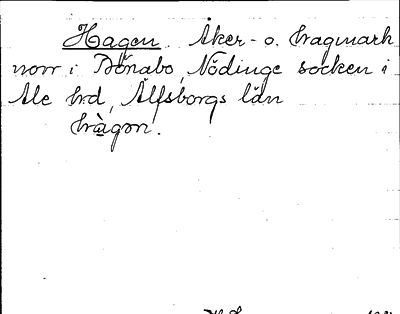 Hagen. Åker- o. hagmark
norr i Dönabo, Nödinge socken i
Ale hd, Älfsborgs län
hàgən.